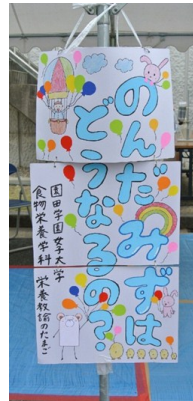 のんだみずは
どうなるの?
園田学園女子大学
食物栄養学科 栄養教諭のたまご